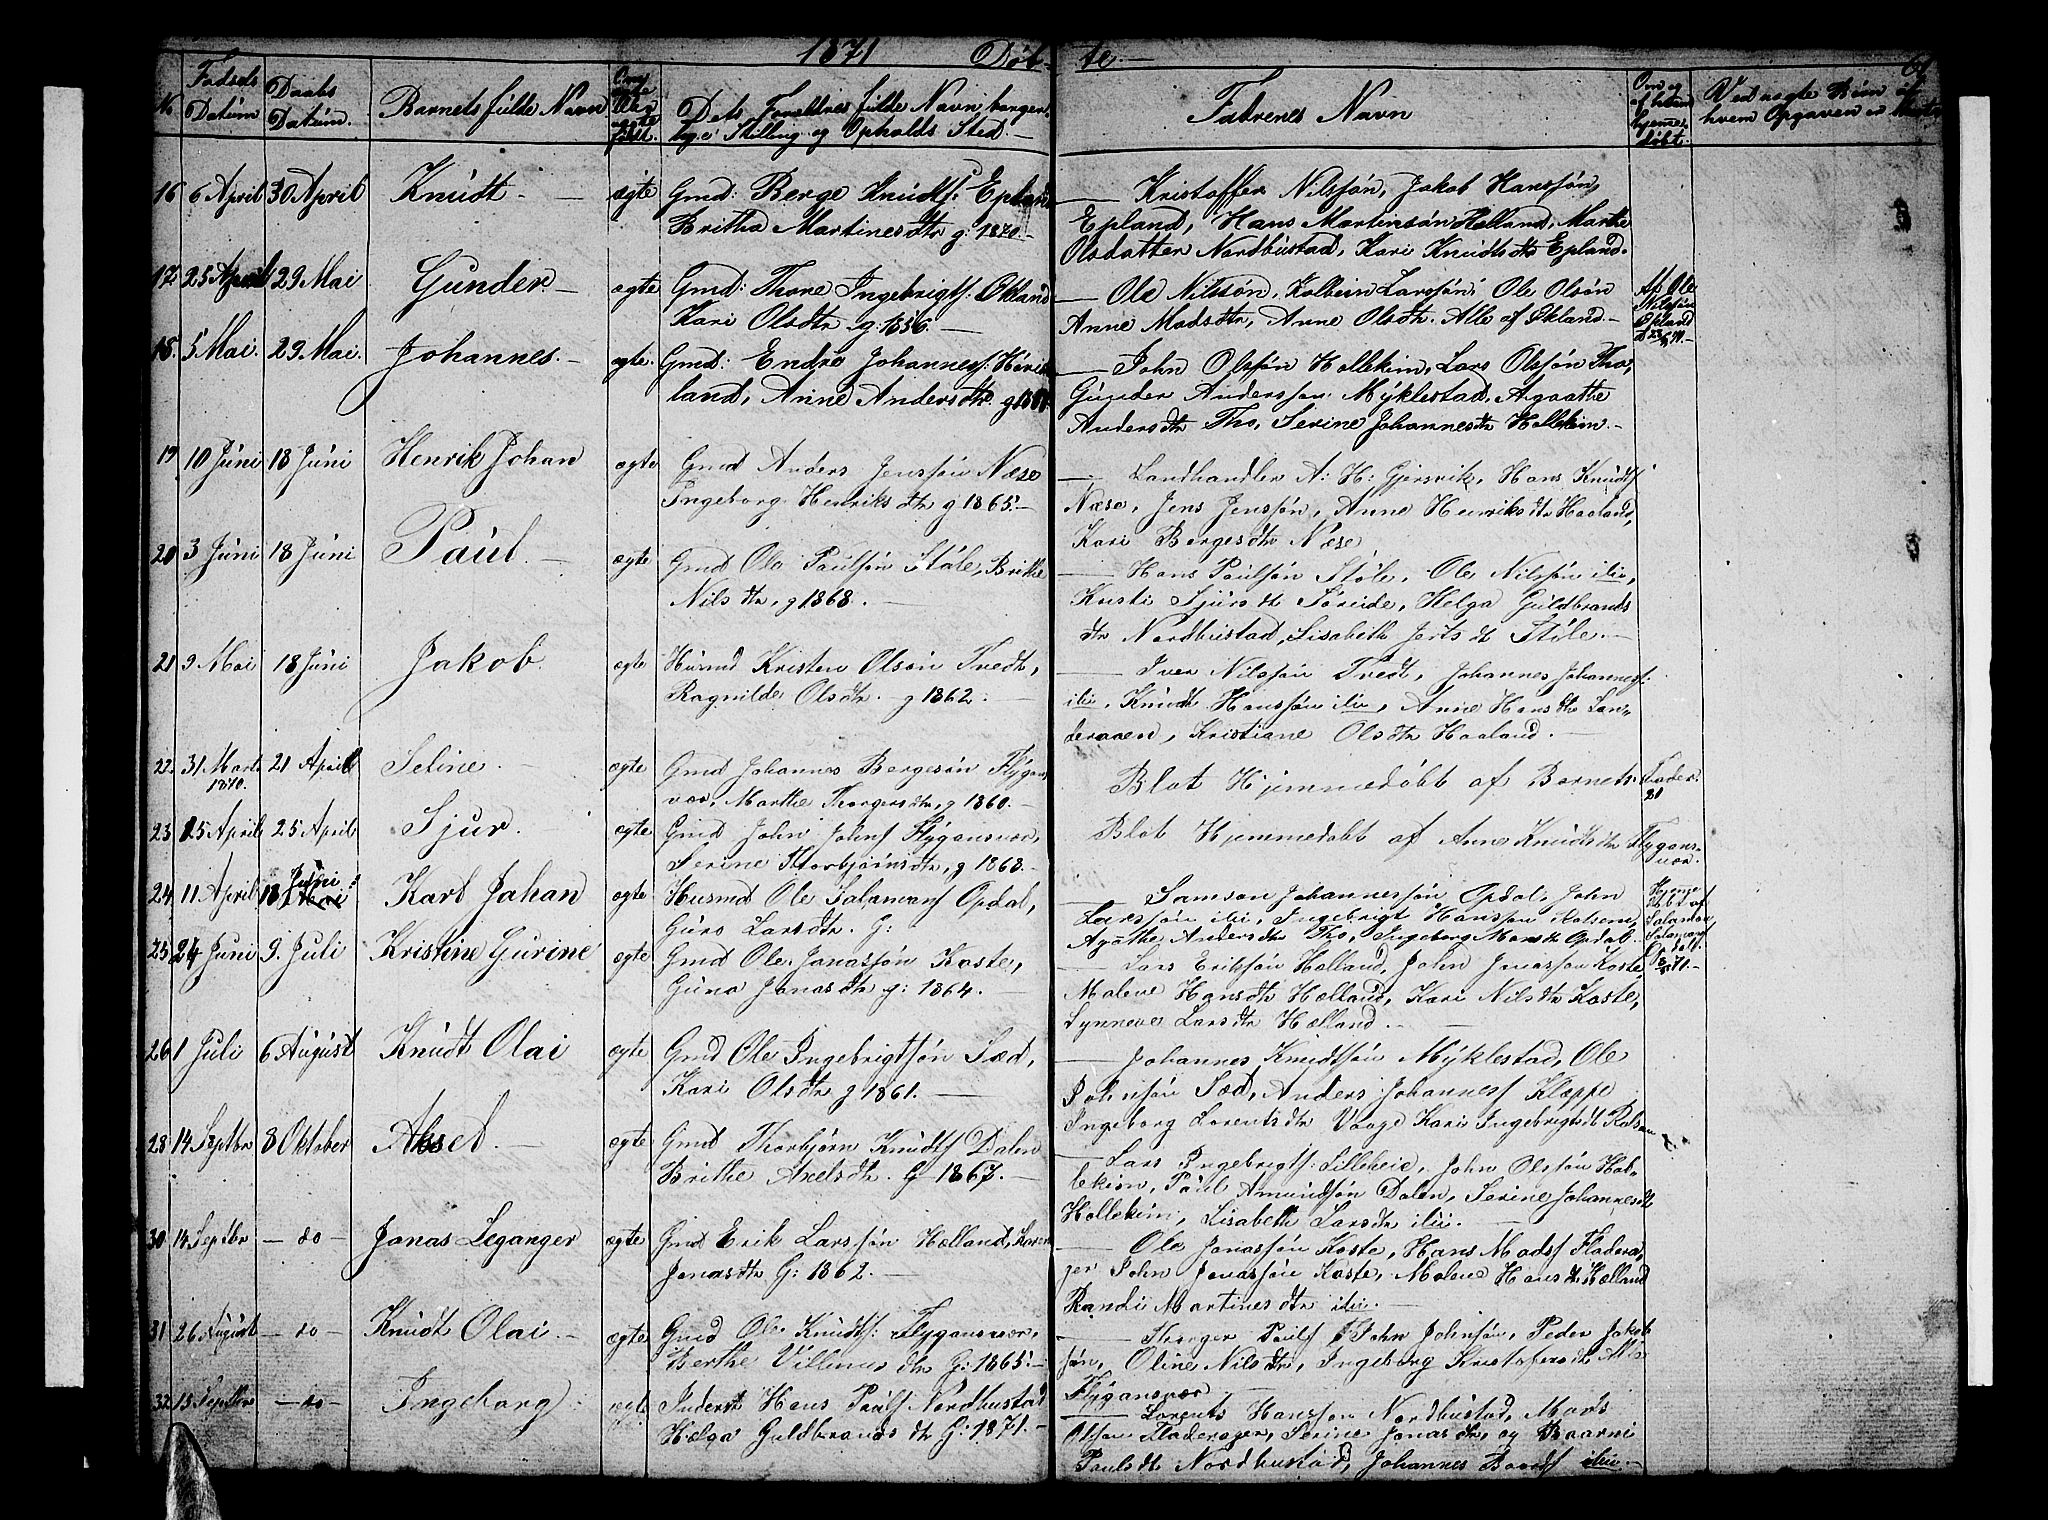 1871 Døb- te.
61
No Fødsels Datum Daabs Datum. Barnets fulde Navn Om ægte eller uægte født. Dets Forældres fulde Navn borger- lige Stilling og Opholds Sted Fadrenes Navn Om og af hvem hjemme- døbt. Ved uægte Børn af hvem Opgaven er
16 6 April 30 April Knudt - ægte Gmd: Berge Knudts: Epland
Britha Martinesdtr g: 1870.-
Kristoffer Nilssøn, Jakob Hanssøn,
Epland, Hans Martinsøn Hølland, Marthe
Olsdatter Nordhustad, Kari Knudtsdtr Epland.
17 25 April 29 Mai Gunder - ægte Gmd: Thore Ingebrigts: Økland
Kari Olsdtr g: 1856.-
Ole Nilssøn, Kolbein Larssøn, Ole Olsøn
Anne Madsdtr, Anne Olsdtr. Alle af Økland.-
Af Ole
Nilssøn
Økland
18. 5 Mai. 29 Mai Johannes.- ægte. Gmd: Endre Johanness:
land, Anne Andersdtr. g
John Olssøn Hollekim, Lars Olssøn Tho,
Gunder Anderssøn Mÿklestad, Agaathe
Andersdtr Tho, Serine Johannesdtr Hollekim.-
19 10 Juni 18 Juni Henrik Johan ægte Gmd Anders Jenssøn Næse
Ingeborg Henriksdtr g 1865.-
Landhandler A: H: Gjersvik, Hans Knudts
Næse, Jens Jenssøn, Anne Henriksdtr Haaland,
Kari Bergesdtr Næse
20 3 Juni 18 Juni Paul.- ægte Gmd Ole Paulsøn Støle, Brithe
Nilsdtr, g 1868.-
Hans Paulsøn Støle, Ole Nilssøn ibi,
Kristi Sjursdt Søreide, Helga Guldbrands
dtr Nordhustad, Lisabeth dt Støle.-
21 9 Mai 18 Juni Jakob ægte Husmd Kristen Olsøn Tvedt,
Ragnilde Olsdtr. g 1862.-
Iver Nilssøn Tvedt, Johannes Johanness:
ibi, Knudt Hanssøn ibi, Anne Hansdtr Lan-
deraaen, Kristiane Olsdtr Haaland.-
22. 31 Marts 1870. 21 April Seline.- ægte Gmd Johannes Bergesøn Flÿgans-
vær, Marthe Thorgersdtr, g 1860.-
Blot Hjemmedøbt af Barnets Fader.
23 25 April 25 April Sjur.- ægte Gmd John Johns Flÿgansvær,
Serine Thorbjørnsdtr, g 1868.-
Blot Hjemmedøbt af Anne Knudsdtr Flygans-
vær.
24 11 April 18 Juni Karl Johan ægte Husmd Ole Salamons Opdal,
Guro Larsdtr. G:
Samson Johannessøn Opdal, John
Larssøn ibi, Ingebrigt Hanssøn
Agathe Andersdtr Tho, Ingeborg Monsdtr Opdal.
Hjemme
døbt af
Salamon
Salamons
Opdal.
25 24 Juni 9. Juli Kristine Gurine ægte Gmd Ole Jonassøn Koste,
Guro Jonasdtr g: 1864.-
Lars Erikssøn Hølland, John Jonassøn Koste
Malene Hansdtr Hølland, Kari Nilsdtr Koste,
Synneve Larsdtr Hølland.-
26 1 Juli 6 August Knudt Olai ægte Gmd Ole Ingebrigtsøn Sæd,
Kari Olsdtr g 1861.-
Johannes Knudtsøn Mÿklestad, Ole
Johnsøn Sæd, Anders Johanness Kleppe
Ingeborg Lorentsdtr Vaage Kari Ingebrigtsdt
28 14 Septbr 8 Oktober Aksel.- ægte Gmd Thorbjørn Knudts Dalen
Brithe Axelsdtr. G 1867.-
Lars Ingebrigts: Lilleheie, John Olssøn Hol-
lekim, Paul Amundsøn Dalen, Serine Johannesdt
Hollekim, Lisabeth Larsdtr ibi.-
30 14 Septbr - do - Jonas Leganger ægte Gmd Erik Larssøn Hølland, Karen
Jonasdtr G: 1862.-
Ole Jonassøn Koste, Hans Mads Fladera-
ger John Jonassøn Koste, Malene Hansdt Hølland
Randi Martinesdtr ibi.-
31 26 August - do - Knudt Olai.- ægte Gmd Ole Knudts: Flÿgansvær,
Berthe Villumsdtr G: 1865.-
Thorger Pauls John Johnsøn, Peder Jakob
søn, Oline Nilsdtr, Ingeborg Kristofersdt Alle
Flÿgansvær
32 15 Septbr - do - Ingeborg ægte Inderst Hans Pauls Nordhustad
Helga Guldbrandsdtr G: 1871.-
Lorents Hanssøn Nordhustad, Mads
Olssøn Fladerager, Serine Jonasdtr, og Baarni
Paulsdt Nordhustad, Johannes ibi.-